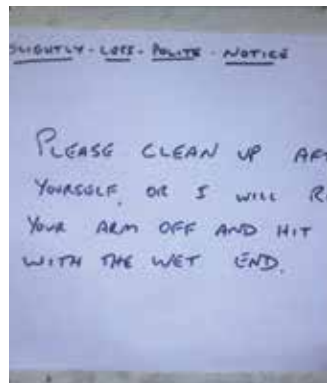 SLIGHTLY - LESS - POLITE - NOTICE
PLEASE CLEAN UP AFT
YOURSELF, OR I WILL R
YOUR ARM OFF AND HIT
WITH THE WET END.